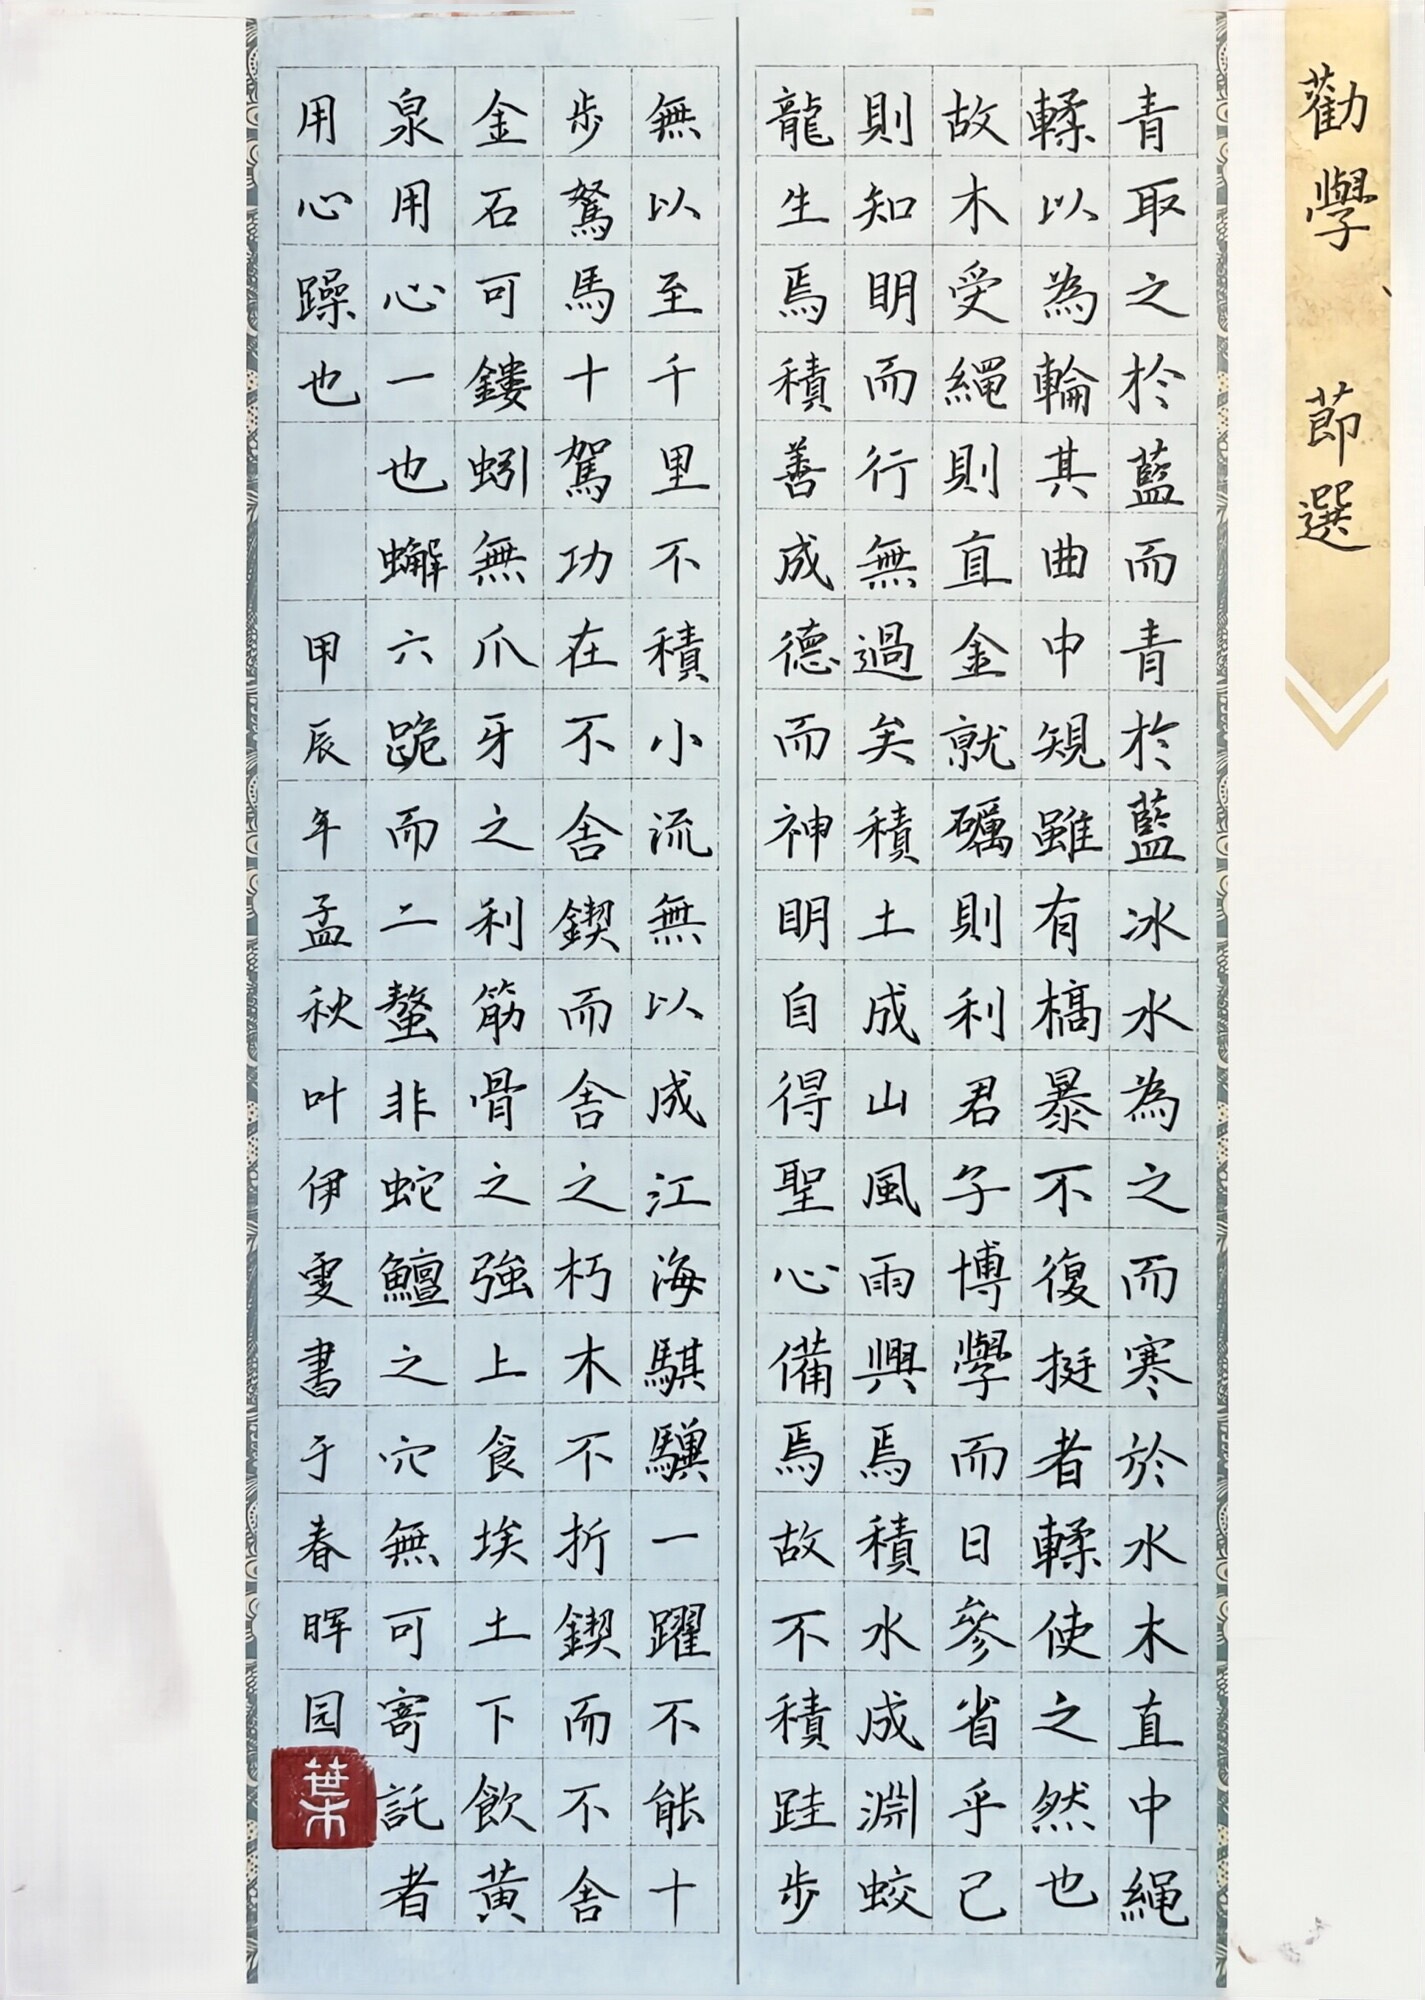 勸學 節選
青取之於藍而青於藍冰水為之而寒於水木直中繩
輮以為輪其曲中規雖有槁暴不復挺者輮使之然也
故木受繩則直金就礪則利君子博學而日參省乎己
則知明而行無過矣積土成山風雨興焉積水成淵蛟
龍生焉積善成德而神明自得聖心備焉故不積跬步
無以至千里不積小流無以成江海騏驥一躍不能十
步駑馬十駕功在不舍鍥而舍之朽木不折鍥而不舍
金石可鏤蚓無爪牙之利筋骨之強上食埃土下飲黃
泉用心一也蠏六跪而二螯非蛇鱣之穴無可寄託者
用心躁也 甲辰年孟秋叶伊雯書于春暉园
葉